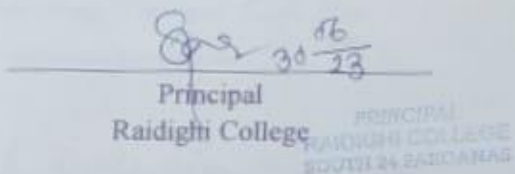 30 06/23
Principal
Raidighi College
PRINCIPAL
RAIDIGHI COLLEGE
SOUTH 24 PARGANAS